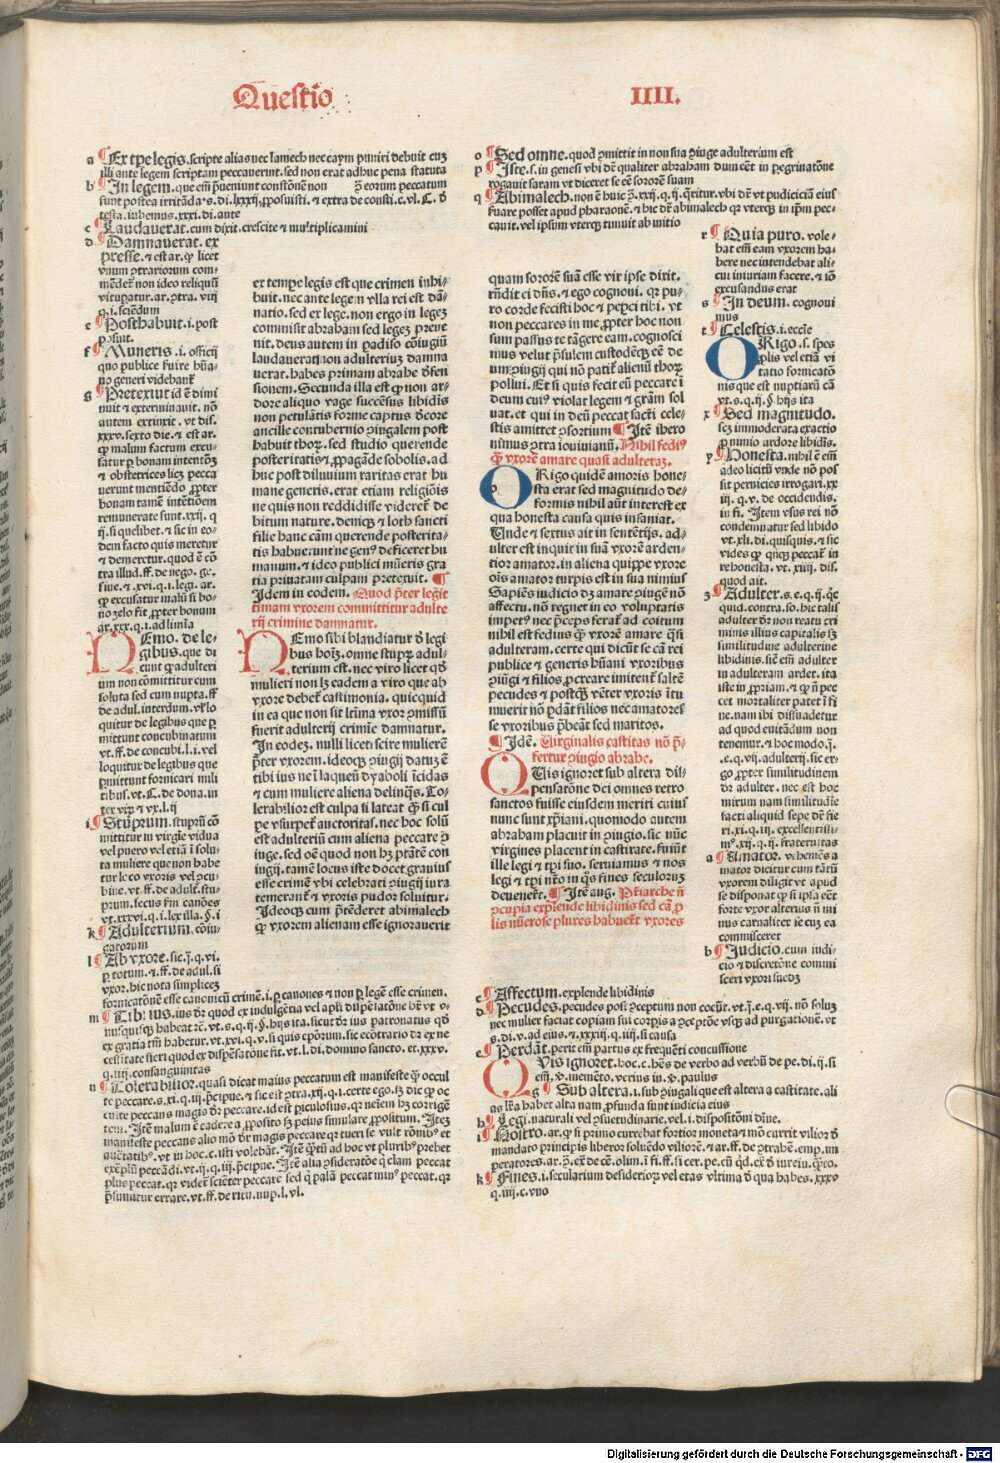 Questio
IIII.
a ¶ Ex tpe legis. scripte alias nec lamech nec caym puniri debuit cuz
illi ante legem scriptam peccauerunt. sed non erat adhuc pena statuta
b ¶ In legem. que em̄ p̱ueniunt constōnem non eorum peccatum
testa. iubemus. xxxi. di. ante
c ¶ Laudauerat. cum dixit. crescite ⁊ multiplicamini
d ¶ Damnauerat. ex
presse. ⁊ est ar. φ licet
vnum ꝯtrariorum com-
mēdet̄ non ideo reliquū
vituꝑatur. ar. ꝯtra. viij
q. i. sciendum
e ¶ Posthabuit. i. post
posuit.
f ¶ Muneris. i. officij
quo publice fuire hūa-
no generi videbant̄
g ¶ Pretexiut id ē dimi
nuit ⁊ exterminauit. nō
autem extinxit. vt dis.
xxxv. sexto die. ⁊ est ar.
φ malum factum excu-
satur ꝑ bonam intentōꝫ
⁊ obstetrices licꝫ pecca
uerunt mentiēdo ꝓpter
bonam tamē intētioēm
remunerate sunt. xxij. q
ij. si quelibet. ⁊ sic in eo-
dem facto quis meretur
⁊ demeretur. quod ē cō
tra illud. ff. de nego. ge.
siue. ⁊ .xvi. q. i. legi. ar.
φ excusatur malū si bo-
no zelo fit ꝓpter bonum
ar. xxx. q. i. ad limia
NEmo. de le-
gibus. que di
cunt φ adulteri
um non cōmittitur cum
soluta sed cum nupta. ff
de adul. interdum. vl̄ lo
quitur de legibus que ꝑ
mittunt concubinatum
vt. ff. de concubi. l. i. vel
loquitur de legibus que
ꝑmittunt fornicari mili
tibus. vt. C. de dona. in
ter viꝝ ⁊ vx. l. ij
i ¶ Stuprum. stuprū cō
mittitur in virgīe vidua
vel puero vel etiā ī solu-
ta muliere que non habe
tur loco vxoris vel ꝯcu-
bine. vt. ff. de adult. stu-
prum. secus ẜm canōes
vt. xxxvi. q. i. lex illa. §. i
k ¶ Adulterium. cōiu-
gatorum
l ¶ Ab vxore. sic. j. q. vi.
ꝑ totum. ⁊. ff. de adul. si
vxor. hic nota simplicez
fornicatōnē esse canonicū crimē. i. ꝑ canones ⁊ non ꝑ legē esse crimen.
m ¶ Tibi ius. ius dr̄ quod ex indulgētia vel apłi dispēsatōne hr̄ vt v-
nusquisqꝫ habeat rē. vt. s. q. ij. §. hijs ita. sicut dr̄ ius patronatus qd̄
ex gratia tm̄ habetur. vt. xvi. q. v. si quis epōrum. sic ecōtrario dr̄ ex ne
cessitate fieri quod ex dispēsatōne fit. vt. l. di. domino sancto. et. xxxv.
q. iij. consanguinitas
n ¶ Tolerabilior. quasi dicat maius peccatum est manifeste φ occul
te peccare. s. xi. q. iij. p̄cipue. ⁊ sic est ꝯtra. xij. q. i. certe ego. sꝫ dic φ oc
culte peccans magis dr̄ peccare. id est ꝑiculosius. qꝛ neīem hꝫ corrigē
tem. Itē malum ē cadere a ꝓposito sꝫ peius simulare ꝓpositum. Iteꝫ
manifeste peccans alio mō dr̄ magis peccare qꝛ tueri se vult rōnibꝰ et
auctoritatibꝰ. vt in hoc. c. isti volebāt. Itē ꝙtū ad hoc vt pluribꝰ prebet
exēplū peccādi. vt. ij. q. iij. p̄cipue. Itē alia ꝯsideratōe q̄ clam peccat
plus peccat. qꝛ videt̄ sciēter peccare sed q̄ palā peccat minꝰ peccat. qꝛ
p̄sumitur errare. vt. ff. de ritu. nup. l. vl.
ex tempe legis est que crimen inhi-
buit. nec ante legem vlla rei est dā-
natio. sed ex lege. non ergo in legeꝫ
commisit abraham sed legeꝫ preue
nit. deus autem in padiso cōiugiū
laudauerat non adulteriuꝫ damna
uerat. habes primam abrahe dēfen
sionem. Secunda illa est φ non ar-
dore aliquo vage succēsus libidis
non petulātis forme captus dēcore
ancille contubernio ꝯiugalem post
habuit thoꝝ. sed studio querende
posteritatis ⁊ ꝓpagāde sobolis. ad
huc post diluuium raritas erat hu
mane generis. erat etiam religiōis
ne quis non reddidisse videret̄ de
bitum nature. deniqꝫ ⁊ loth sancti
filie hanc cām querende posterita-
tis habuerunt ne genꝰ deficeret hu
manum. ⁊ ideo publici mūeris gra
tia priuatam culpam pretexuit. ¶
Idem in eodem. Quod p̄ter legit
timam vxorem committitur adulte
rij crimine damnatur.
NEmo sibi blandiatur dē legi
bus hoiꝫ. omne stupꝝ adul-
terium est. nec viro licet qd̄
mulieri non lꝫ eadem a viro que ab
vxore debet̄ castimonia. quicquid
in ea que non sit ltīma vxor ꝯmissū
fuerit adulterij crimīe damnatur.
In codeꝫ. nulli licet scire mulierē
p̄ter vxorem. ideoqꝫ ꝯiugij datuꝫ ē
tibi ius ne ī laqueū dyaboli īcidas
⁊ cum muliere aliena delinqs̄. To-
lerabilior est culpa si lateat φ si cul
pe vsurpet̄ auctoritas. nec hoc solū
est adulteriū cum aliena peccare ꝯ
iuge. sed oē quod non hꝫ ptātē con
iugij. tamē locus iste docet grauius
esse crimē vbi celebrati ꝯiugij iura
temerant̄ ⁊ vxoris pudor soluitur.
Ideoqꝫ cum p̄tēderet abimalech
φ vxorem alienam esse ignorauerit
o ¶ Sed omne. quod ꝯmittit in non sua ꝯiuge adulterium est
p ¶ Iste. s. in genesi vbi dr̄ qualiter abraham dum eēt in ꝑegrinatōne
rogauit saram vt diceret se eē sororē suam
q ¶ Abimalech. non ē huic ꝯ̄. xxij. q. ij. q̄ritur. vbi dr̄ vt pudicicia eius
seruare posset apud pharaonē. ⁊ hic dr̄ abimalech qꝛ vterqꝫ in ip̄m pec-
cauit. vel ipsum vterqꝫ timuit ab initio
quam sororē suā esse vir ipse dixit.
rn̄dit ei dn̄s. ⁊ ego cognoui. qꝛ pu-
ro corde fecisti hoc ⁊ peꝑci tibi. vt
non peccares in me ꝓpter hoc non
sum passus te tāgere eam. cognosci
mus velut p̄sulem custodēqꝫ eē de
um ꝯiugij qui nō patit̄ alienū thoꝝ
pollui. Et si quis fecit eū peccare ī
deum cuiꝰ violat legem ⁊ grām sol
uat. et qui in deū peccat sacri cele-
stis amittet ꝯsortium ¶ Itē ihero
nimus ꝯtra iouinianū. Nihil fediꝰ
φ vxorē amare quasi adulteraꝫ.
ORigo quidē amoris hone-
sta erat sed magnitudo de-
formis nihil aūt interest ex
qua honesta causa quis insaniat.
Unde ⁊ sextus ait in sentētijs. ad-
ulter est inquit in suā vxorē arden-
tior amator. in aliena quippe vxore
oīs amor turpis est in sua nimius
Sapiēs iudicio dꝫ amare ꝯiugē nō
affectu. nō regnet in eo voluptatis
impetꝰ nec p̄ceps ferat̄ ad coitum
nihil est fedius φ vxorē amare q̄si
adulteram. certe qui dicūt se cā rei
publice ⁊ generis hūani vxoribus
ꝯiūgi ⁊ filios ꝓcreare imitent̄ saltē
pecudes ⁊ postꝙ vēter vxoris ītu
muerit nō ꝑdāt filios nec amatores
se vxoribus p̄beāt sed maritos.
¶ Idē. Virginalis castitas nō p̄-
fertur ꝯiugio abrahe.
QVis ignoret sub altera dis-
pensatōne dei omnes retro
sanctos fuisse eiusdem meriti cuius
nunc sunt xp̄iani. quomodo autem
abraham placuit in ꝯiugio. sic nūc
virgines placent in castitate. fuiūt
ille legi ⁊ tp̄i suo. seruiamus ⁊ nos
legi ⁊ tp̄i nr̄o in qs̄ fines seculoruꝫ
deuenert̄. ¶ Itē aug. Pr̄iarche n̄
ꝯcupia explende libidinis sed cā ꝓ
lis nūerose plures habuert̄ vxores
r ¶ Quia puro. vole-
bat em̄ eam vxorem ha-
bere nec intendebat ali-
cui iniuriam facere. ⁊ iō
excusandus erat
s ¶ In deum. cognoui
mus
t ¶ Celestis. i. eccl̄e
ORigo. s. spes
ꝓlis vel etiā vi
tatio fornicatō
nis que est nuptiarū cā
vt. s. q. ij. §. hijs ita
x ¶ Sed magnitudo.
scꝫ immoderata exactio
ꝓ nimio ardore libidīs.
y ¶ Honesta. nihil ē em̄
adeo licitū vnde nō pos
sit pernicies irrogari. xx
iij. q. v. de occidendis.
in fi. Item vsus rei nō
condemnatur sed libido
vt. xli. di. quisquis. ⁊ sic
vides φ qn̄qꝫ peccat̄ in
re honesta. vt. xiiij. dis.
quod ait.
z ¶ Adulter. s. e. q. ij. q̄c
quid. contra. so. hic talis
adulter dr̄ non reatu cri
minis illius capitalis sꝫ
similitudine adulterine
libidinis. sic em̄ adulter
in adulteram ardet. ita
iste in ꝓpriam. ⁊ φ n̄ pec
cet mortaliter patet ī fi
ne. nam ibi dissuadetur
ad quod euitādum non
tenemur. ⁊ hoc modo. j.
e. q. vij. adulterij. sic er-
go ꝓpter similitudinem
dr̄ adulter. nec est hoc
mirum nam similitudīe
facti aliquid sepe dr̄ fie
ri. xi. q. iij. excellentissi-
mꝰ. xij. q. ij. fraternitas
a ¶ Amator. vehemēs a
mator dicitur cum tātū
vxorem diligit vt apud
se disponat φ si ipsa eēt
forte vxor alterius n̄ mi
nus carnaliter īe cuꝫ ea
commisceret
b ¶ Judicio. cum iudi-
cio ⁊ discretōne commi
sceri vxori sue dꝫ
c ¶ Affectum. explende libidinis
d ¶ Pecudes. pecudes post ꝯceptum non coeūt. vt. j. e. q. vij. nō soluꝫ
nec mulier faciat copiam sui corpis a ꝯceptōe vsqꝫ ad purgationē. vt
s. di. v. ad eius. ⁊ xxxiij. q. iiij. si causa
e ¶ Perdāt. perit em̄ partus ex frequēti concussione
QVis ignoret. hoc. c. hr̄s de verbo ad verbū de pe. di. ij. si
em̄. v̄. memēto. verius in. v̄. paulus
g ¶ Sub altera. i. sub ꝯiugali que est altera a castitate. ali
as lr̄a habet alta nam ꝓfunda sunt iudicia eius
h ¶ Legi. naturali vel ꝯsuetudinarie. vel. i. dispositōni diuīe.
i ¶ Nostro. ar. φ si primo currebat fortior moneta ⁊ mō currit vilior dr̄
mandato principis liberor soluēdo viliorē. ⁊ ar. ff. de ꝯtrahē. emp. im
peratores. ar. ꝯ̄. ex de cē. olim. i fi. ff. si cer. pe. cū qd̄. ex dr̄ iureiu. q̄ro.
k ¶ Fines. i. secularium desiderioꝝ vel etas vltima dr̄ qua habes. xxxv
q. iiij. c. vno
Digitalisierung gefördert durch die Deutsche Forschungsgemeinschaft - DFG